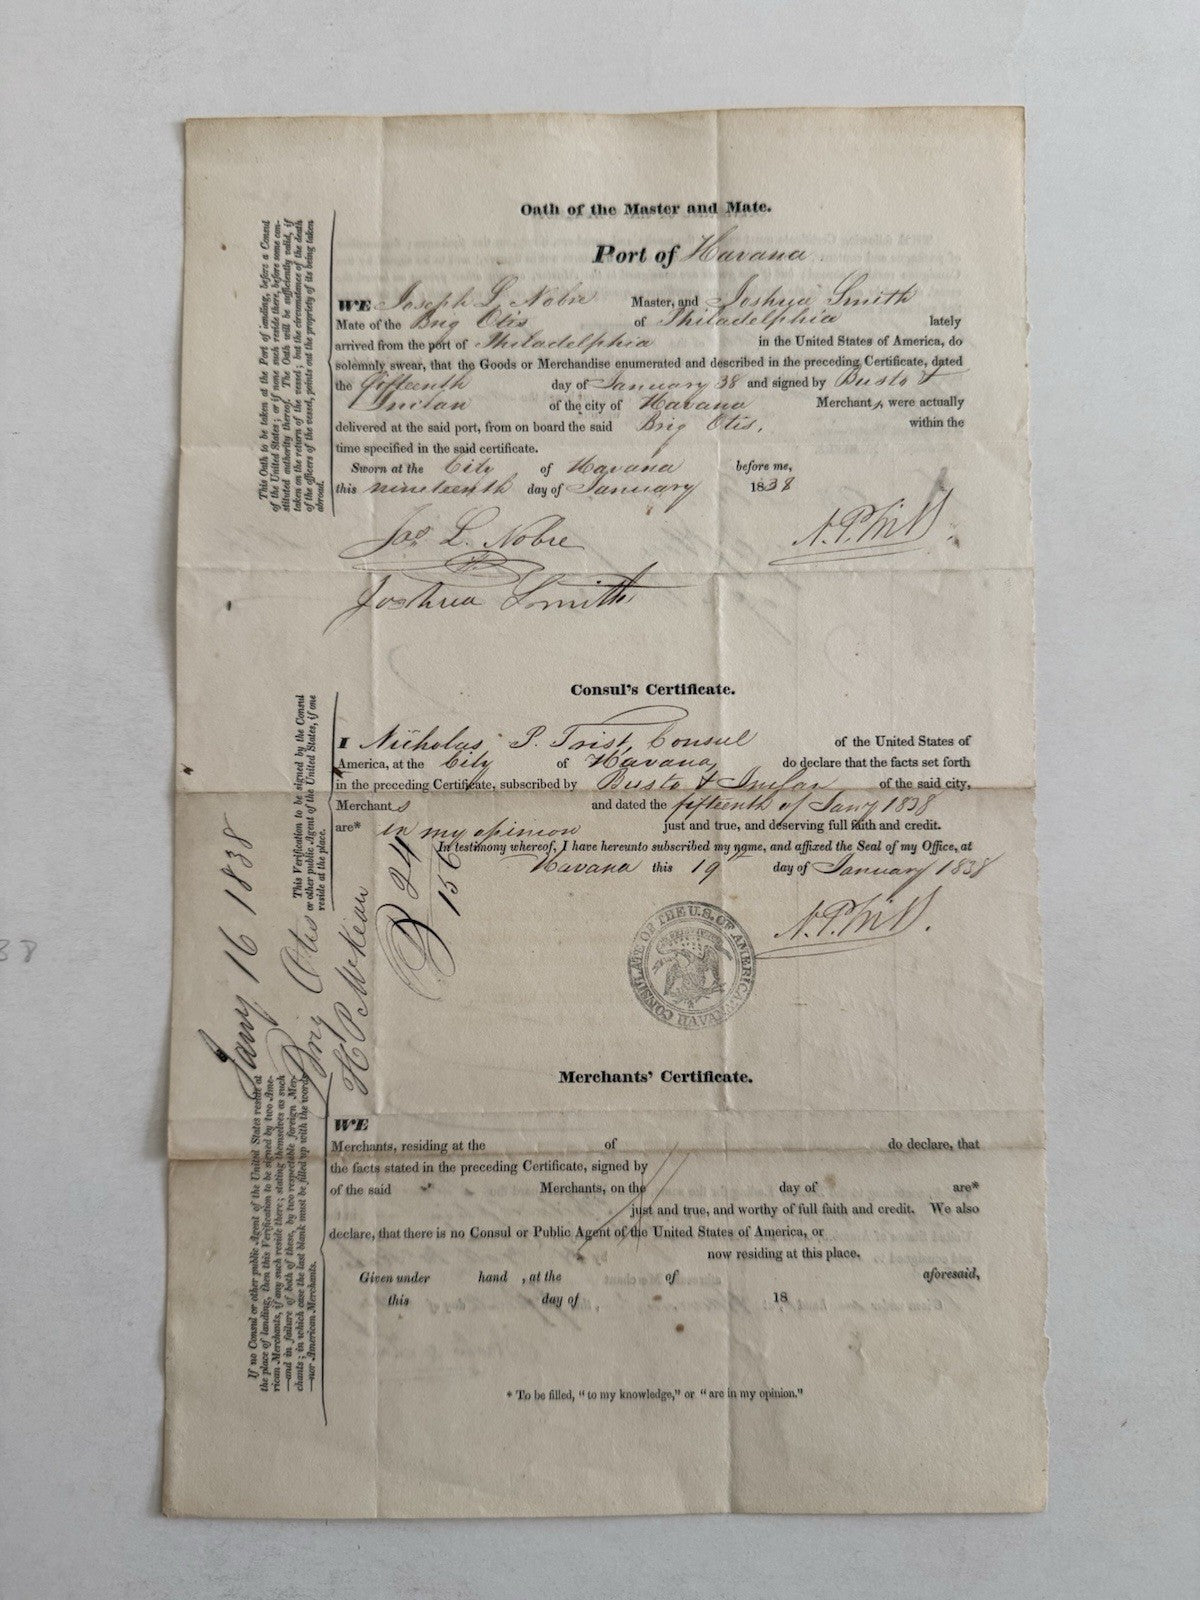 Oath of the Master and Mate.
Port of Havana
WE Joseph L. Nobre Master, and Joshua Smith
Mate of the Brig Otis of Philadelphia lately
arrived from the port of Philadelphia in the United States of America, do
solemnly swear, that the Goods or Merchandise enumerated and described in the preceding Certificate, dated
the fifteenth day of January 38 and signed by Busto &
of the city of Havana Merchants, were actually
delivered at the said port, from on board the said Brig Otis, within the
time specified in the said certificate.
Sworn at the City of Havana before me,
this nineteenth day of January 1838
Jos L. Nobre
N. P. Trist.
Joshua Smith
This Oath to be taken at the Port of landing, before a Consul
of the United States; or if none such reside there, before some con-
stituted authority thereof. The Oath will be sufficiently valid, if
taken on the return of the vessel; but the circumstance of the death
of the officers of the vessel, points out the propriety of its being taken
abroad.
Consul's Certificate.
I Nicholas P. Trist, Consul of the United States of
America, at the City of Havana do declare that the facts set forth
in the preceding Certificate, subscribed by Busto & of the said city,
Merchants and dated the fifteenth of Jany 1838
are* in my opinion just and true, and deserving full faith and credit.
In testimony whereof, I have hereunto subscribed my name, and affixed the Seal of my Office, at
Havana this 19 day of January 1838
N. P. Trist.
CONSULATE OF THE U.S. OF AMERICA
This Verification to be signed by the Consul
or other public Agent of the United States, if one
reside at the place.
Jany 16 1838
Brig Otis
H P McKean
24
156
Merchants' Certificate.
WE
Merchants, residing at the of do declare, that
the facts stated in the preceding Certificate, signed by
of the said Merchants, on the day of are*
just and true, and worthy of full faith and credit. We also
declare, that there is no Consul or Public Agent of the United States of America, or
now residing at this place.
Given under hand , at the of aforesaid,
this day of 18
If no Consul or other public Agent of the United States reside at
the place of landing, then this Verification to be signed by two Ame-
rican Merchants, if any such reside there; stating themselves as such
—and in failure of both of these, by two respectable foreign Mer-
chants; in which case the last blank must be filled up with the words
—nor American Merchants.
* To be filled, "to my knowledge," or "are in my opinion."
38